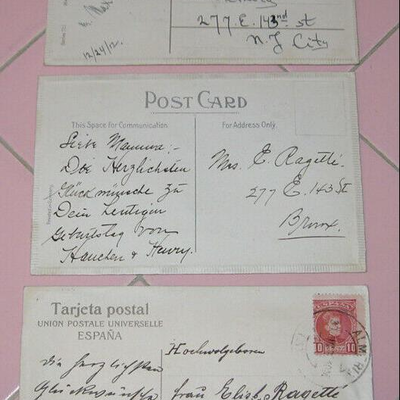 12/24/12.
277 E. 143nd st
N.Y. City
POST CARD
This Space for Communication
For Address Only
Liebe Mamma:-
Die Herzlichsten
Glückwünsche zu
Dein heutigen
Geburtstag von
Hanchen & Henry.
Mrs. E. Ragetté
277 E. 143 St
Bronx.
Tarjeta postal
UNION POSTALE UNIVERSELLE
ESPAÑA
10 10
Hochwolgeboren
die herzlichsten
Glückwünsche
frau Elisb. Ragetté